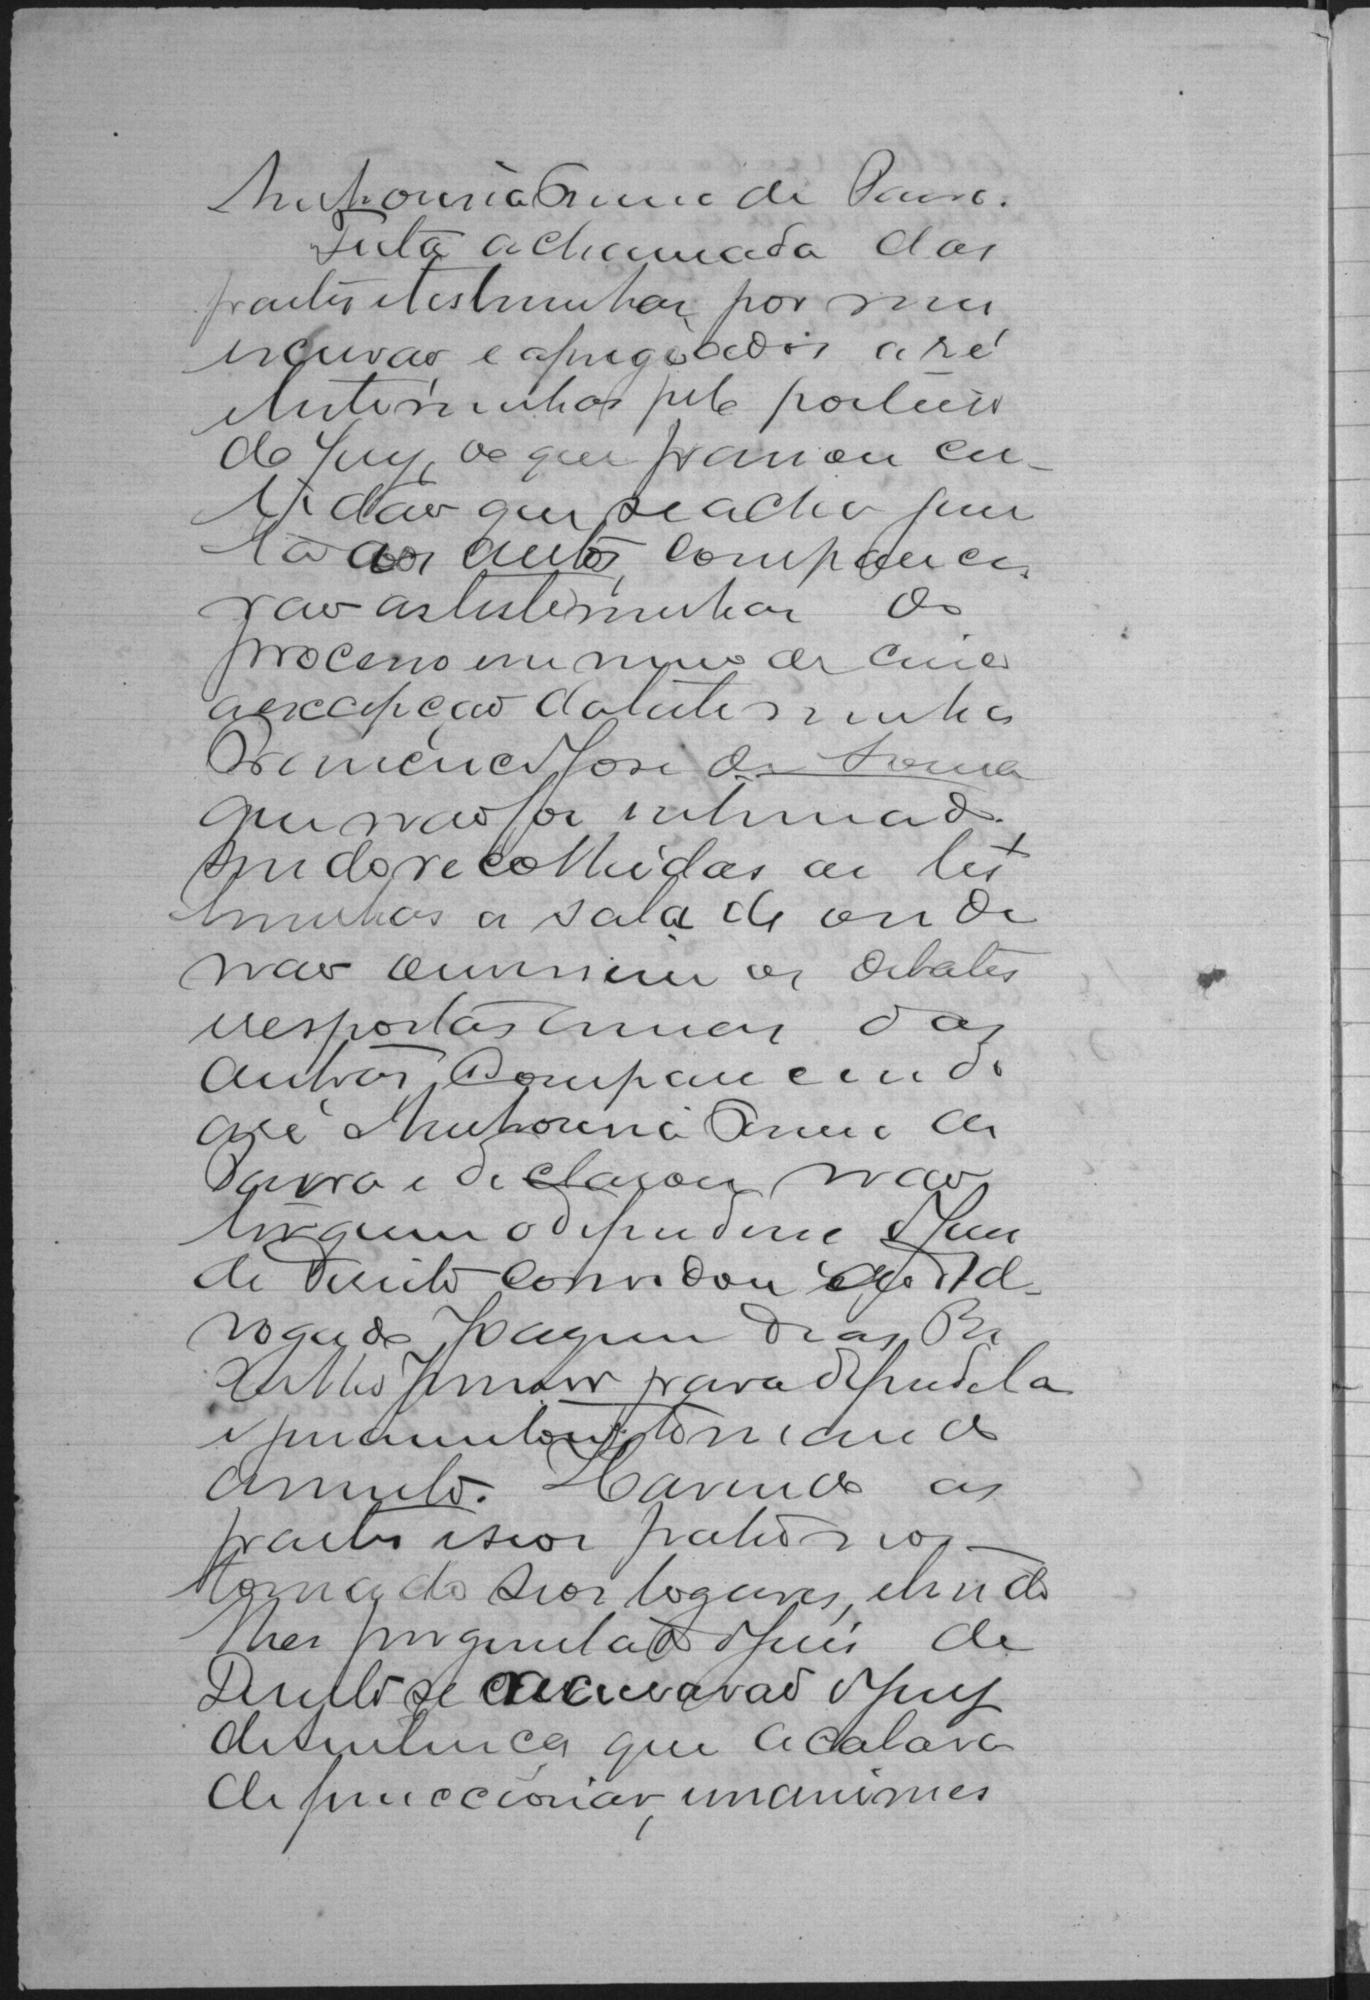 Anthonia Anna de Paiva.
Feita a chamada das
partes e testimunhas por mim
escrivão e apregoados a ré
e testimunhas pelo porteiro
do Jury, o que passou cer-
tidão que se acha jun
ta aos autos, comparece
rão as testimunhas do
processo em numero de cinco
a excepção da testimunha
José de Souza
que não foi intimado.
Sendo recolhidas as tes
timunhas a sala de onde
não ouvissem os debates
respostas umas das
outras. Comparecendo
a ré Anthonia Anna de
Paiva e declarou não
ter quem o defendesse o Juiz
de Direito convidou o Ad-
vogado Joaquim Dias Bi
calho Junior para defendel a
e juramentou, tomando
assento. Havendo as
partes e seos
tomado seos logares, e sendo
lhes perguntado o Juiz de
Direito se accusavão o Jury
de sentença que acabava
de funccionar, unanimes